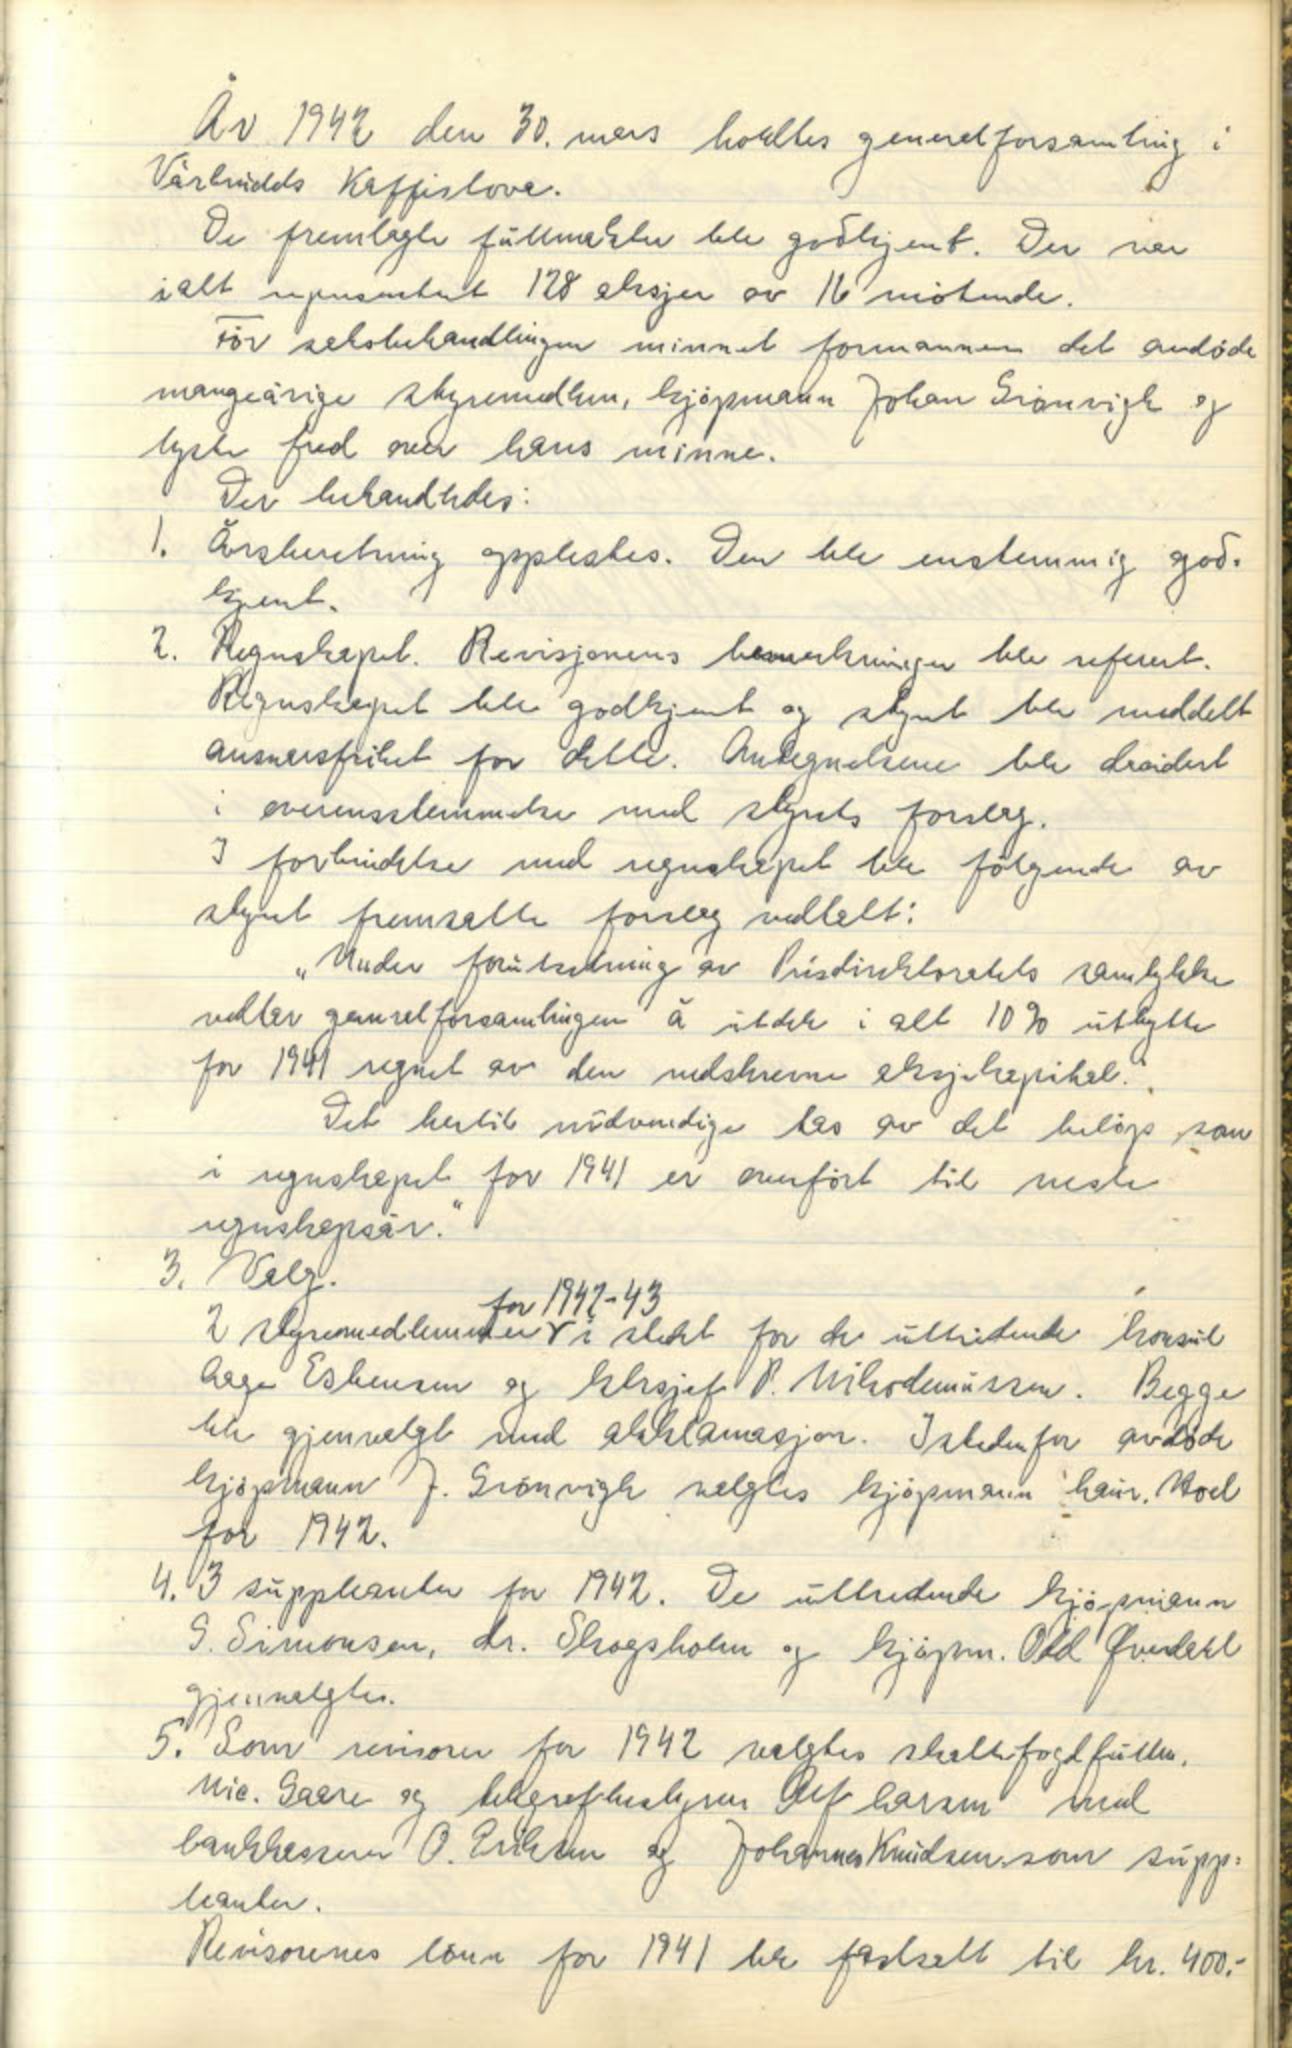 År 1942 den 30. mars holdtes generalforsamling i
Vårbudds Kaffistova.
De fremlagte fullmakter ble godkjent. Der var
ialt representert 128 aksjer av 16 møtende.
Før saksbehandlingen minnet formannen det avdøde
mangeårige styremedlem, kjøpmann Johan Grønvigh og
lyste fred over hans minne.
Der behandledes:
1. Årsberetning opplestes. Den ble enstemmig god-
kjent.
2. Regnskapet. Revisjonens bemerkninger ble referert.
Regnskapet ble godkjent og styret ble meddelt
ansvarsfrihet for dette. Antegnelsene ble desidert
i overensstemmelse med styrets forslag.
I forbindelse med regnskapet ble følgende av
styret fremsatte forslag vedtatt:
„Under forutsetning av Prisdirektoratets samtykke
vedtar generalforsamlingen å utdele i alt 10% utbytte
for 1941 regnet av den nedskrevne aksjekapital."
Det hertil nødvendige tas av det beløp som
i regnskapet for 1941 er overført til neste
regnskapsår."
3. Valg.
2 styremedlemmer for 1942-43 i stedet for de uttredende konsul
Aage Esbensen og k.sjef P. Nikodemussen. Begge
ble gjenvalgt med akklamasjon. Istedenfor avdøde
kjøpmann J. Grønvigh valgtes kjøpmann Hoel
for 1942.
4. 3 suppleanter for 1942. De uttredende kjøpmann
G. Simonsen, dr. Skogsholm og kjøpm. Odd Øverdahl
gjenvalgtes.
5. Som revisorer for 1942 valgtes skattefogdfullm.
Nic. Saare og telegrafbestyrer Alf Larsen med
bankkasserer O. Eriksen og Johannes Knudsen som supp=
leanter.
Revisorenes lønn for 1941 ble fastsatt til kr. 400.-